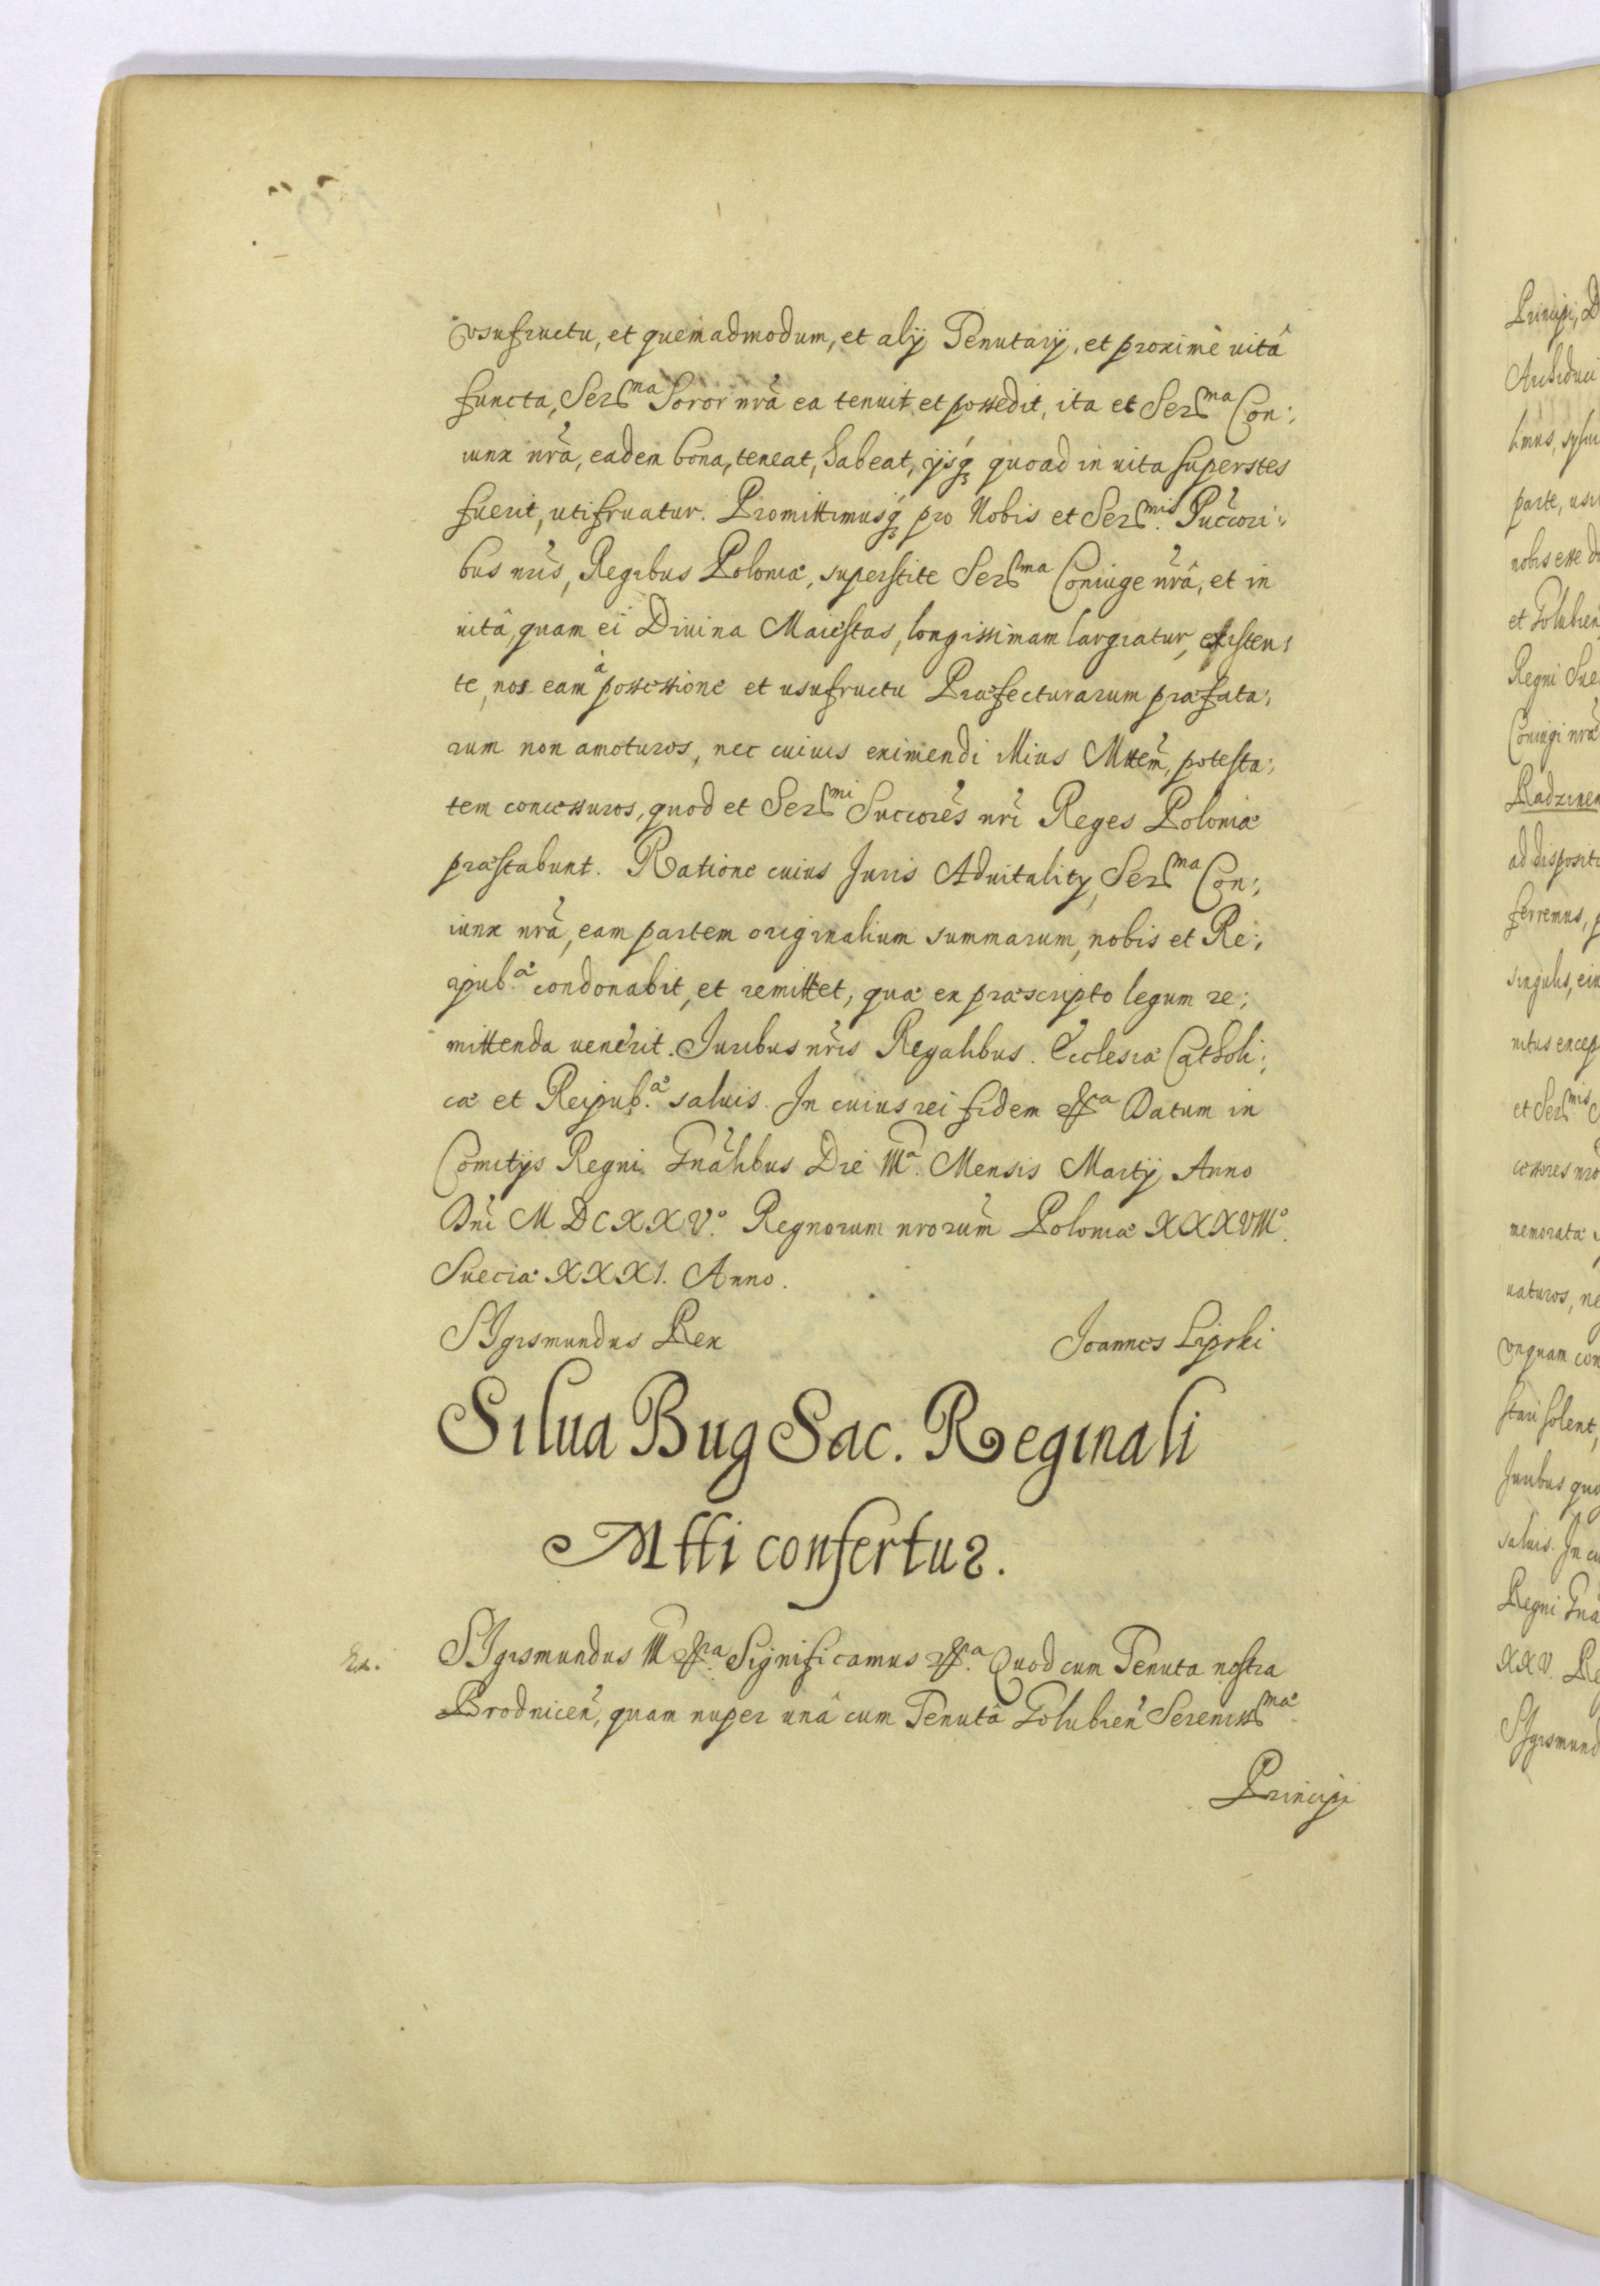 vsufructu, et quemadmodum, et alij Tenutarij, et proximè uitâ
functa, Ser.ma Soror nr̃a ea tenuit et possedit, ita et Ser.ma Con:
iunx nr̃a, eadem bona, teneat, habeat, ijsq́ꝫ quoad in uita superstes
fuerit, utifruatur. Promittimusq́ꝫ pro Nobis et Ser.mis Succori:
bus nr̃is, Regibus Poloniæ, superstite Ser.ma Coniuge nr̃â, et in
uitâ, quam ei Diuina Maiestas, longissimam largiatur, existen:
te, nos eam à possessione et usufructu Præfecturarum præfata:
rum non amoturos, nec cuiuis eximendi illius Mttem̃, potesta:
tem concessuros, quod et Ser.mi Succorẽs nr̃i Reges Poloniæ
præstabunt. Ratione cuius Juris Aduitalitij, Ser.ma Con:
iunx nr̃a, eam partem originalium summarum, nobis et Re:
ipub.æ condonabit, et remittet, quæ ex præscripto legum re:
mittenda uenerit. Juribus nr̃is Regalibus. Ecclesiæ Catholi:
cæ et Reipub.æ saluis. In cuius rei fidem &ca Datum in
Comitijs Regni Gnãlibus Die IIIa. Mensis Martij Anno
Dnĩ MDCXXV.o Regnorum nrorum̃ Poloniæ XXXVIIIo.
Sueciæ XXXI. Anno.
SIgismundus Rex
Joannes Lipski
Silua Bug Sac. Reginali
Mtti confertur.
SIgismundus III &ca. Significamus &ca. Quod cum Tenuta nostra
Brodnicen̄, quam nuper unâ cum Tenutâ Golubien̄ Sereniss.mæ
Principi
Principi, D
parte, usu
Regni Sue
Coniugi nr̃æ
ad dispositi
ferremus, p
singulis, eiu
et Ser.mis
memoratæ
uaturos, ne
vnquam con
stari solent,
Juribus quo
saluis. In cu
Regni Gnã
XXV. Re
SIgismund